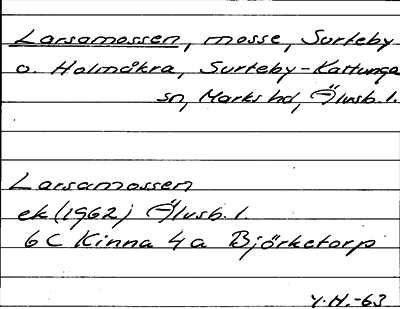 Larsamossen, mosse, Surteby
o. Holmåkra, Surteby-Kattunga
sn, Marks hd, Älvsb. l.
Larsamossen
ek (1962) Älvsb. l.
6 C Kinna 4 a Björketorp
Y.H.-63